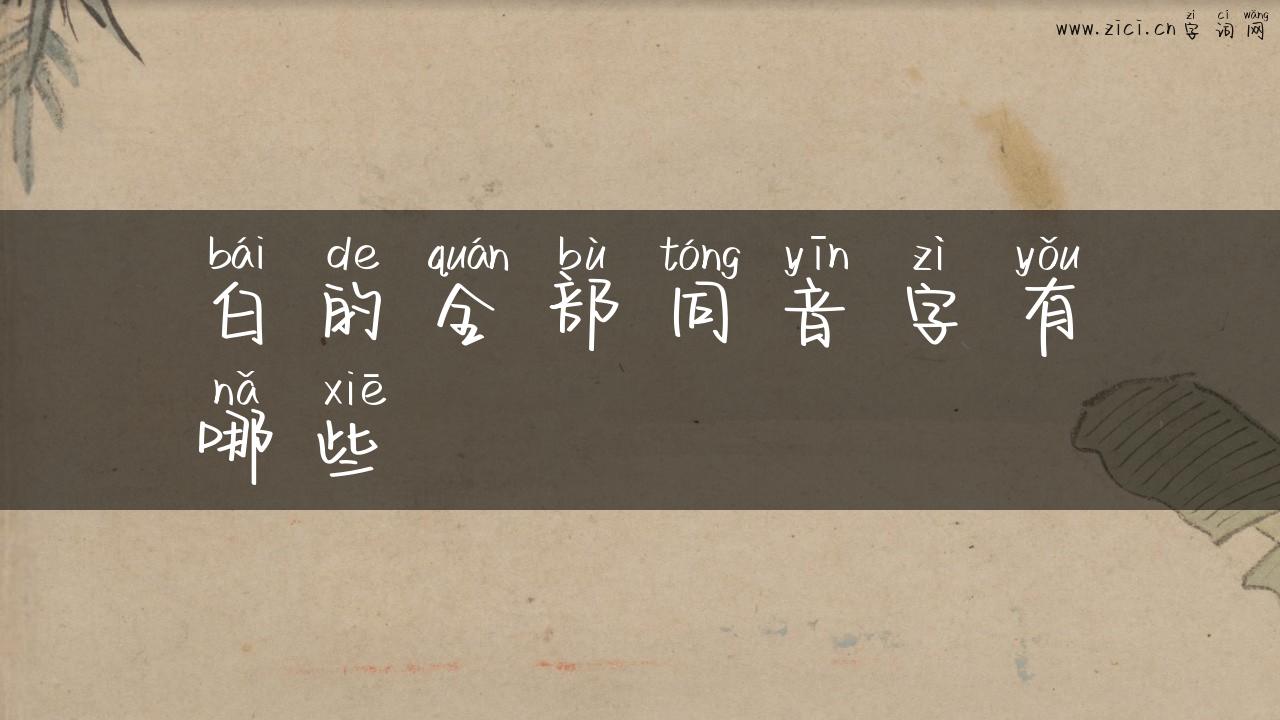 zì cí wǎng
www.zici.cn 字 词 网
bái de quán bù tóng yīn zì yǒu
白 的 全 部 同 音 字 有
nǎ xiē
哪 些